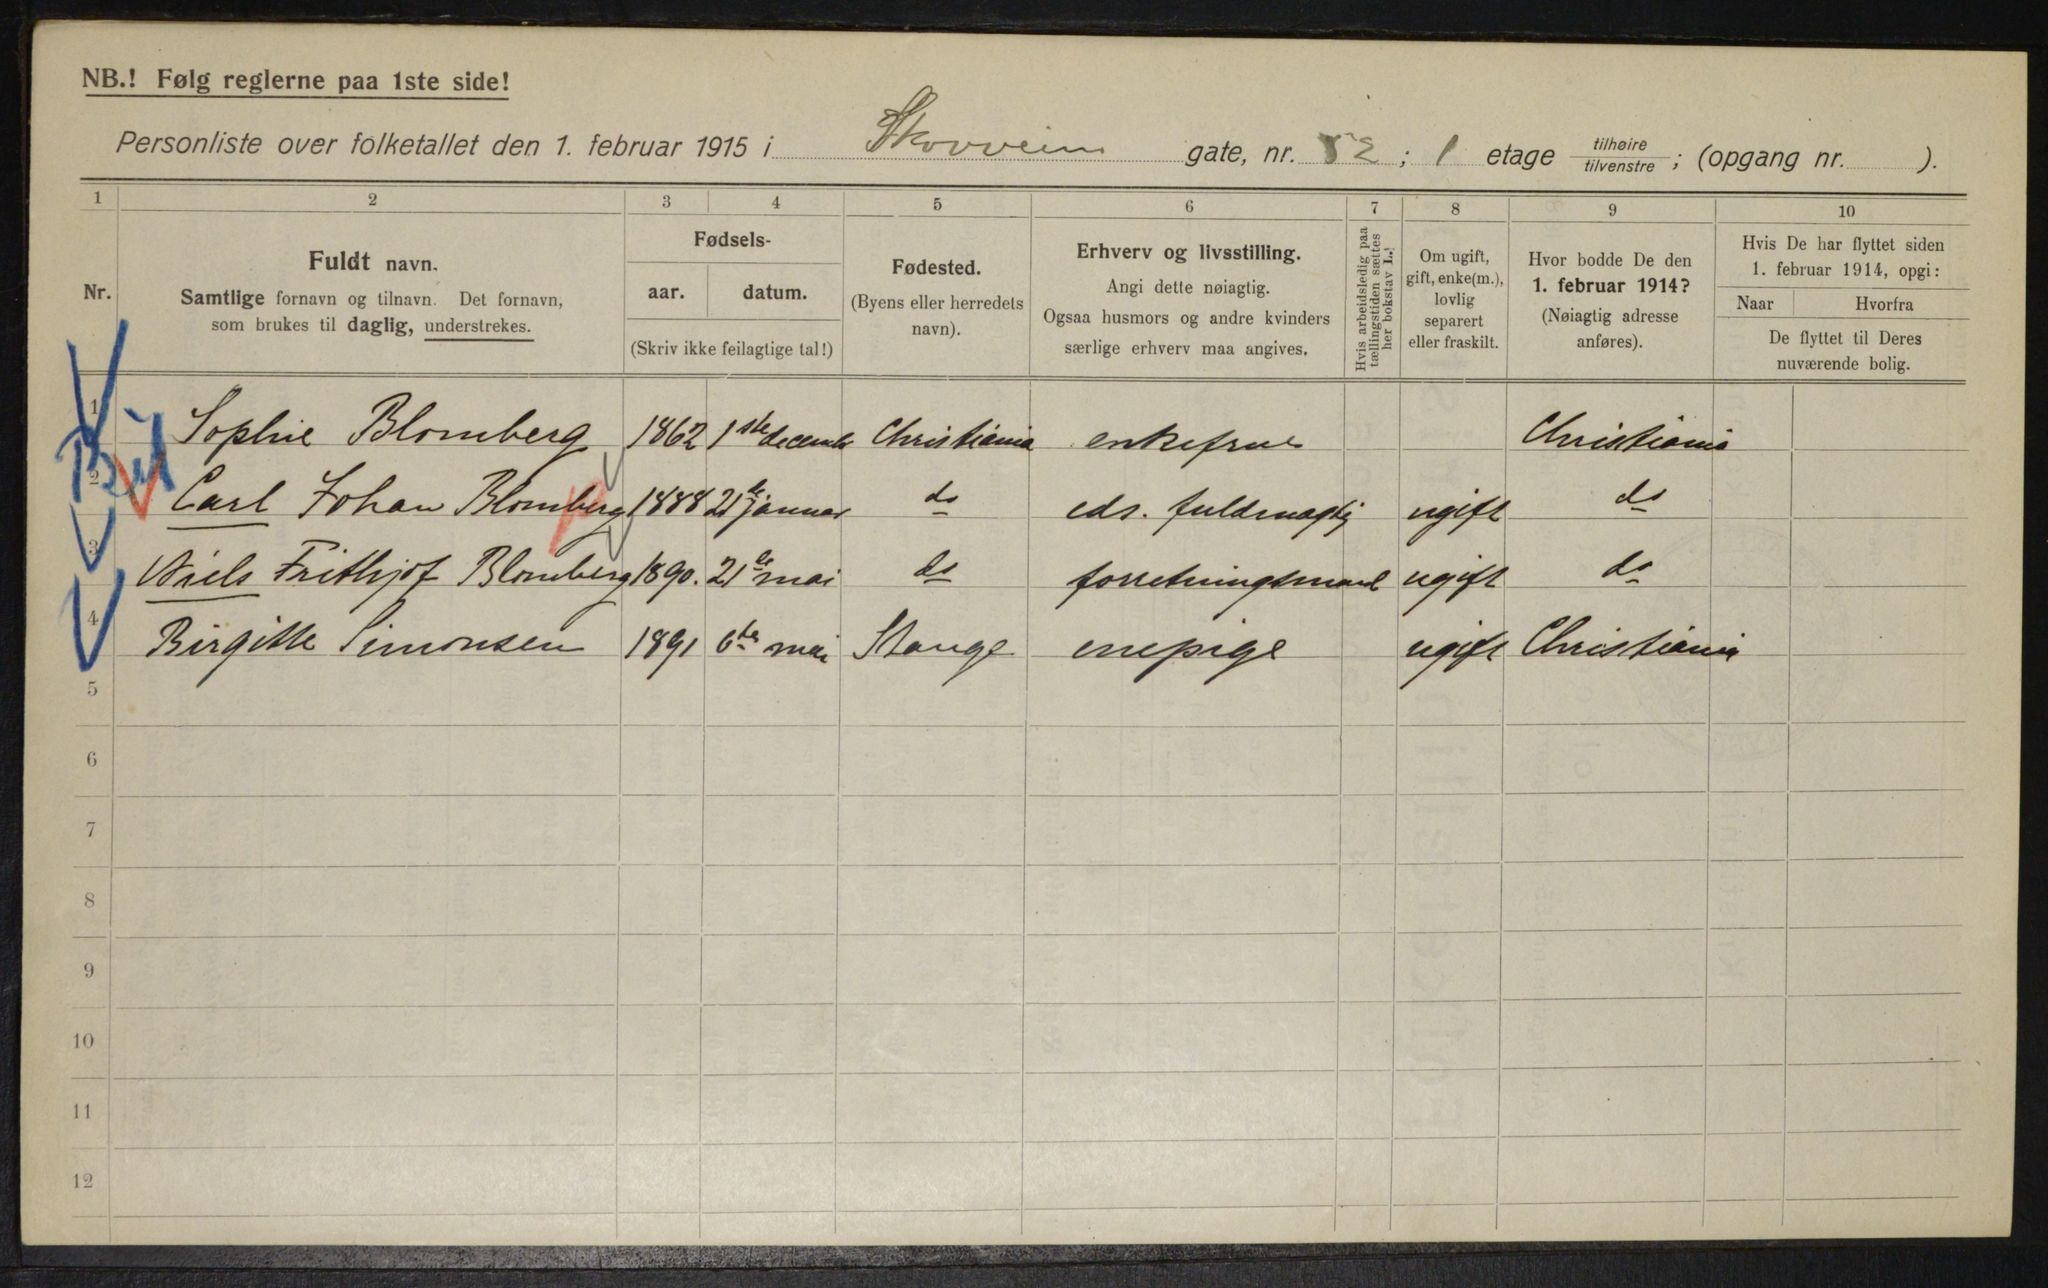 NB.! Følg reglerne paa 1ste side!
Personliste over folketallet den 1. februar 1915 i Skovveien gate, nr. 52; 1 etage tilhøire tilvenstre; (opgang nr. ).
1 2 3 4 5 6 7 8 9 10
Nr.
Fuldt navn.
Samtlige fornavn og tilnavn. Det fornavn,
som brukes til daglig, understrekes.
Fødsels-
aar. datum.
(Skriv ikke feilagtige tal!)
Fødested.
(Byens eller herredets
navn).
Erhverv og livsstilling.
Angi dette nøiagtig.
Ogsaa husmors og andre kvinders
særlige erhverv maa angives.
Hvis arbeidsledig paa
tællingstiden sættes
her bokstav L.!
Om ugift,
gift, enke(m.),
lovlig
separert
eller fraskilt.
Hvor bodde De den
1. februar 1914?
(Nøiagtig adresse
anføres).
Hvis De har flyttet siden
1. februar 1914, opgi:
Naar Hvorfra
De flyttet til Deres
nuværende bolig.
1 Sophie Blomberg 1862 1ste december Christiania enkefrue Christiania
2 Carl Johan Blomberg 1888 21de januar do eds. fuldmægtig ugift do
3 Niels Frithjof Blomberg 1890. 21de mai do forretningsmand ugift do
4 Birgitte Simonsen 1891 6te mai Stange enepige ugift Christiania
5
6
7
8
9
10
11
12